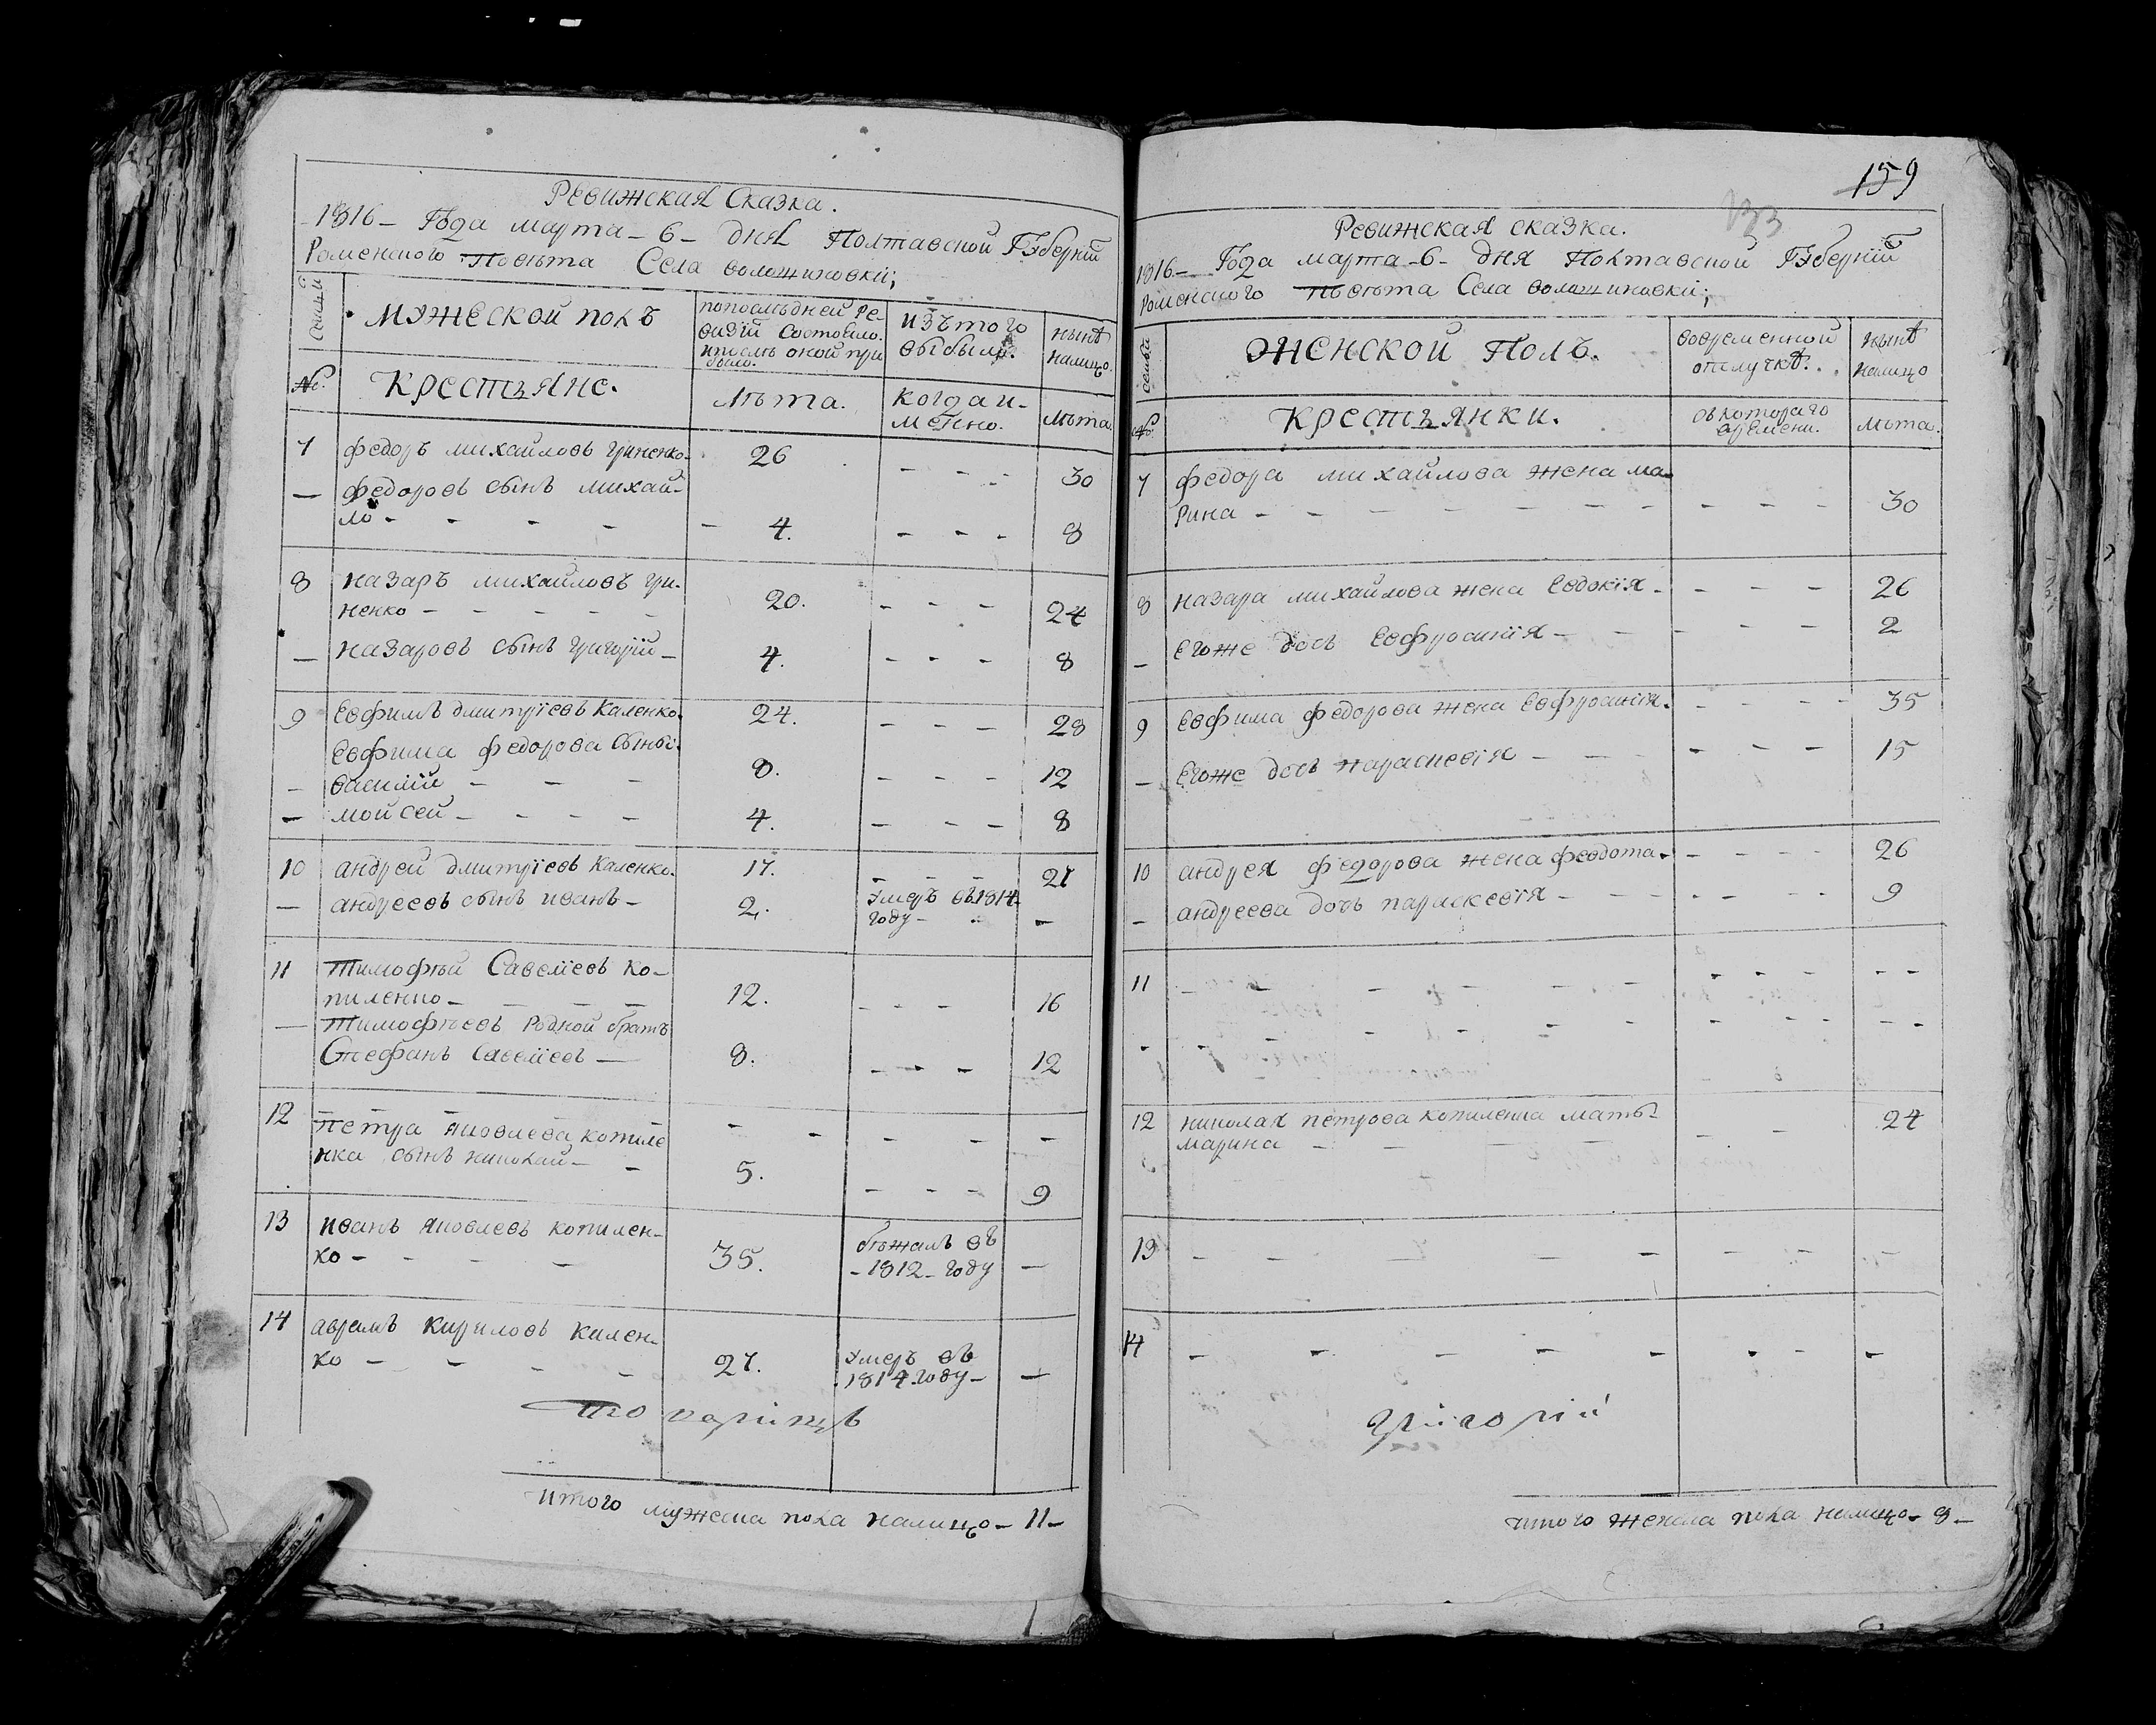 Ревижская Сказка.
1816 - Года марта - 6 - дня Полтавской Губерніи
Роменского Повѣта Села воложиновки;
Семьи
Мужеской полъ
попослѣдней Ре-
визіи Состояло.
ипослѣ оной при
было.
Изътого
выбыло.
нынѣ
налицо.
№.
Крестьяне.
Лѣта.
Когда и-
менно.
Лѣта
7 федоръ михайловъ гриненко 26 - - - 30
— федоровъ сынъ михай-
ло - - - - 4. - - - 8
8 назаръ михайловъ гри-
ненко - - - - 20. - - - 24
— назаровъ сынъ григорій - 4. - - - 8
9 Евфимъ дмитріевъ Каленко. 24. - - - 28
Евфима федорова сыны.
- василій - - - 8. - - - 12
- мойсей - - - - 4. - - - 8
10 андрей дмитріевъ Каленко. 17. - - - 21
— андреевъ сынъ иванъ - 2. Умеръ въ 1814
году - -
11 Тимофѣй Савеліевъ Ко-
пиленко - - - - 12. - - - 16
— Тимофѣевъ Родной братъ
Стефанъ Савеліевъ — 8. - - - 12
12 Петра Яковлева копиле - - - - -
нка сынъ николай - - 5. - - - 9
13 Иванъ Яковлевъ копилен-
ко - - - - 35. бѣжалъ въ
- 1812 - году —
14 аврамъ Кириловъ Кален-
ко - - - - 27. Умеръ въ
1814 году - —
Товарищъ
Итого мужеска пола налицо - 11 -
159
133
Ревижская сказка.
1816 - Года марта - 6 - дня Полтавской Губерніи
Роменского Повѣта Села воложиновки;
семьи
Женской Полъ.
вовременной
отлучкѣ.
нынѣ
налицо
№.
Крестьянки.
съкотораго
времени.
лѣта.
7 федора михайлова жена ма-
рина - - - - - - - - - - 30
8 назара михайлова жена Евдокія - - - - 26
- Егоже дочь Евфросинія - - - - - 2
9 Евфима федорова жена Евфросинія. - - - - 35
- Егоже дочь параскевія - - - - - - 15
10 андрея федорова жена феодота. - - - - 26
- андреева дочь параскевія - - - - - 9
11 - - - - - - - - - - -
- - - - - - - - - - - -
12 николая петрова копиленка мать
марина - - - - - - 24
13 - - - - - - - - -
14 - - - - - - - -
григорій
Итого женска пола налицо - 8 -